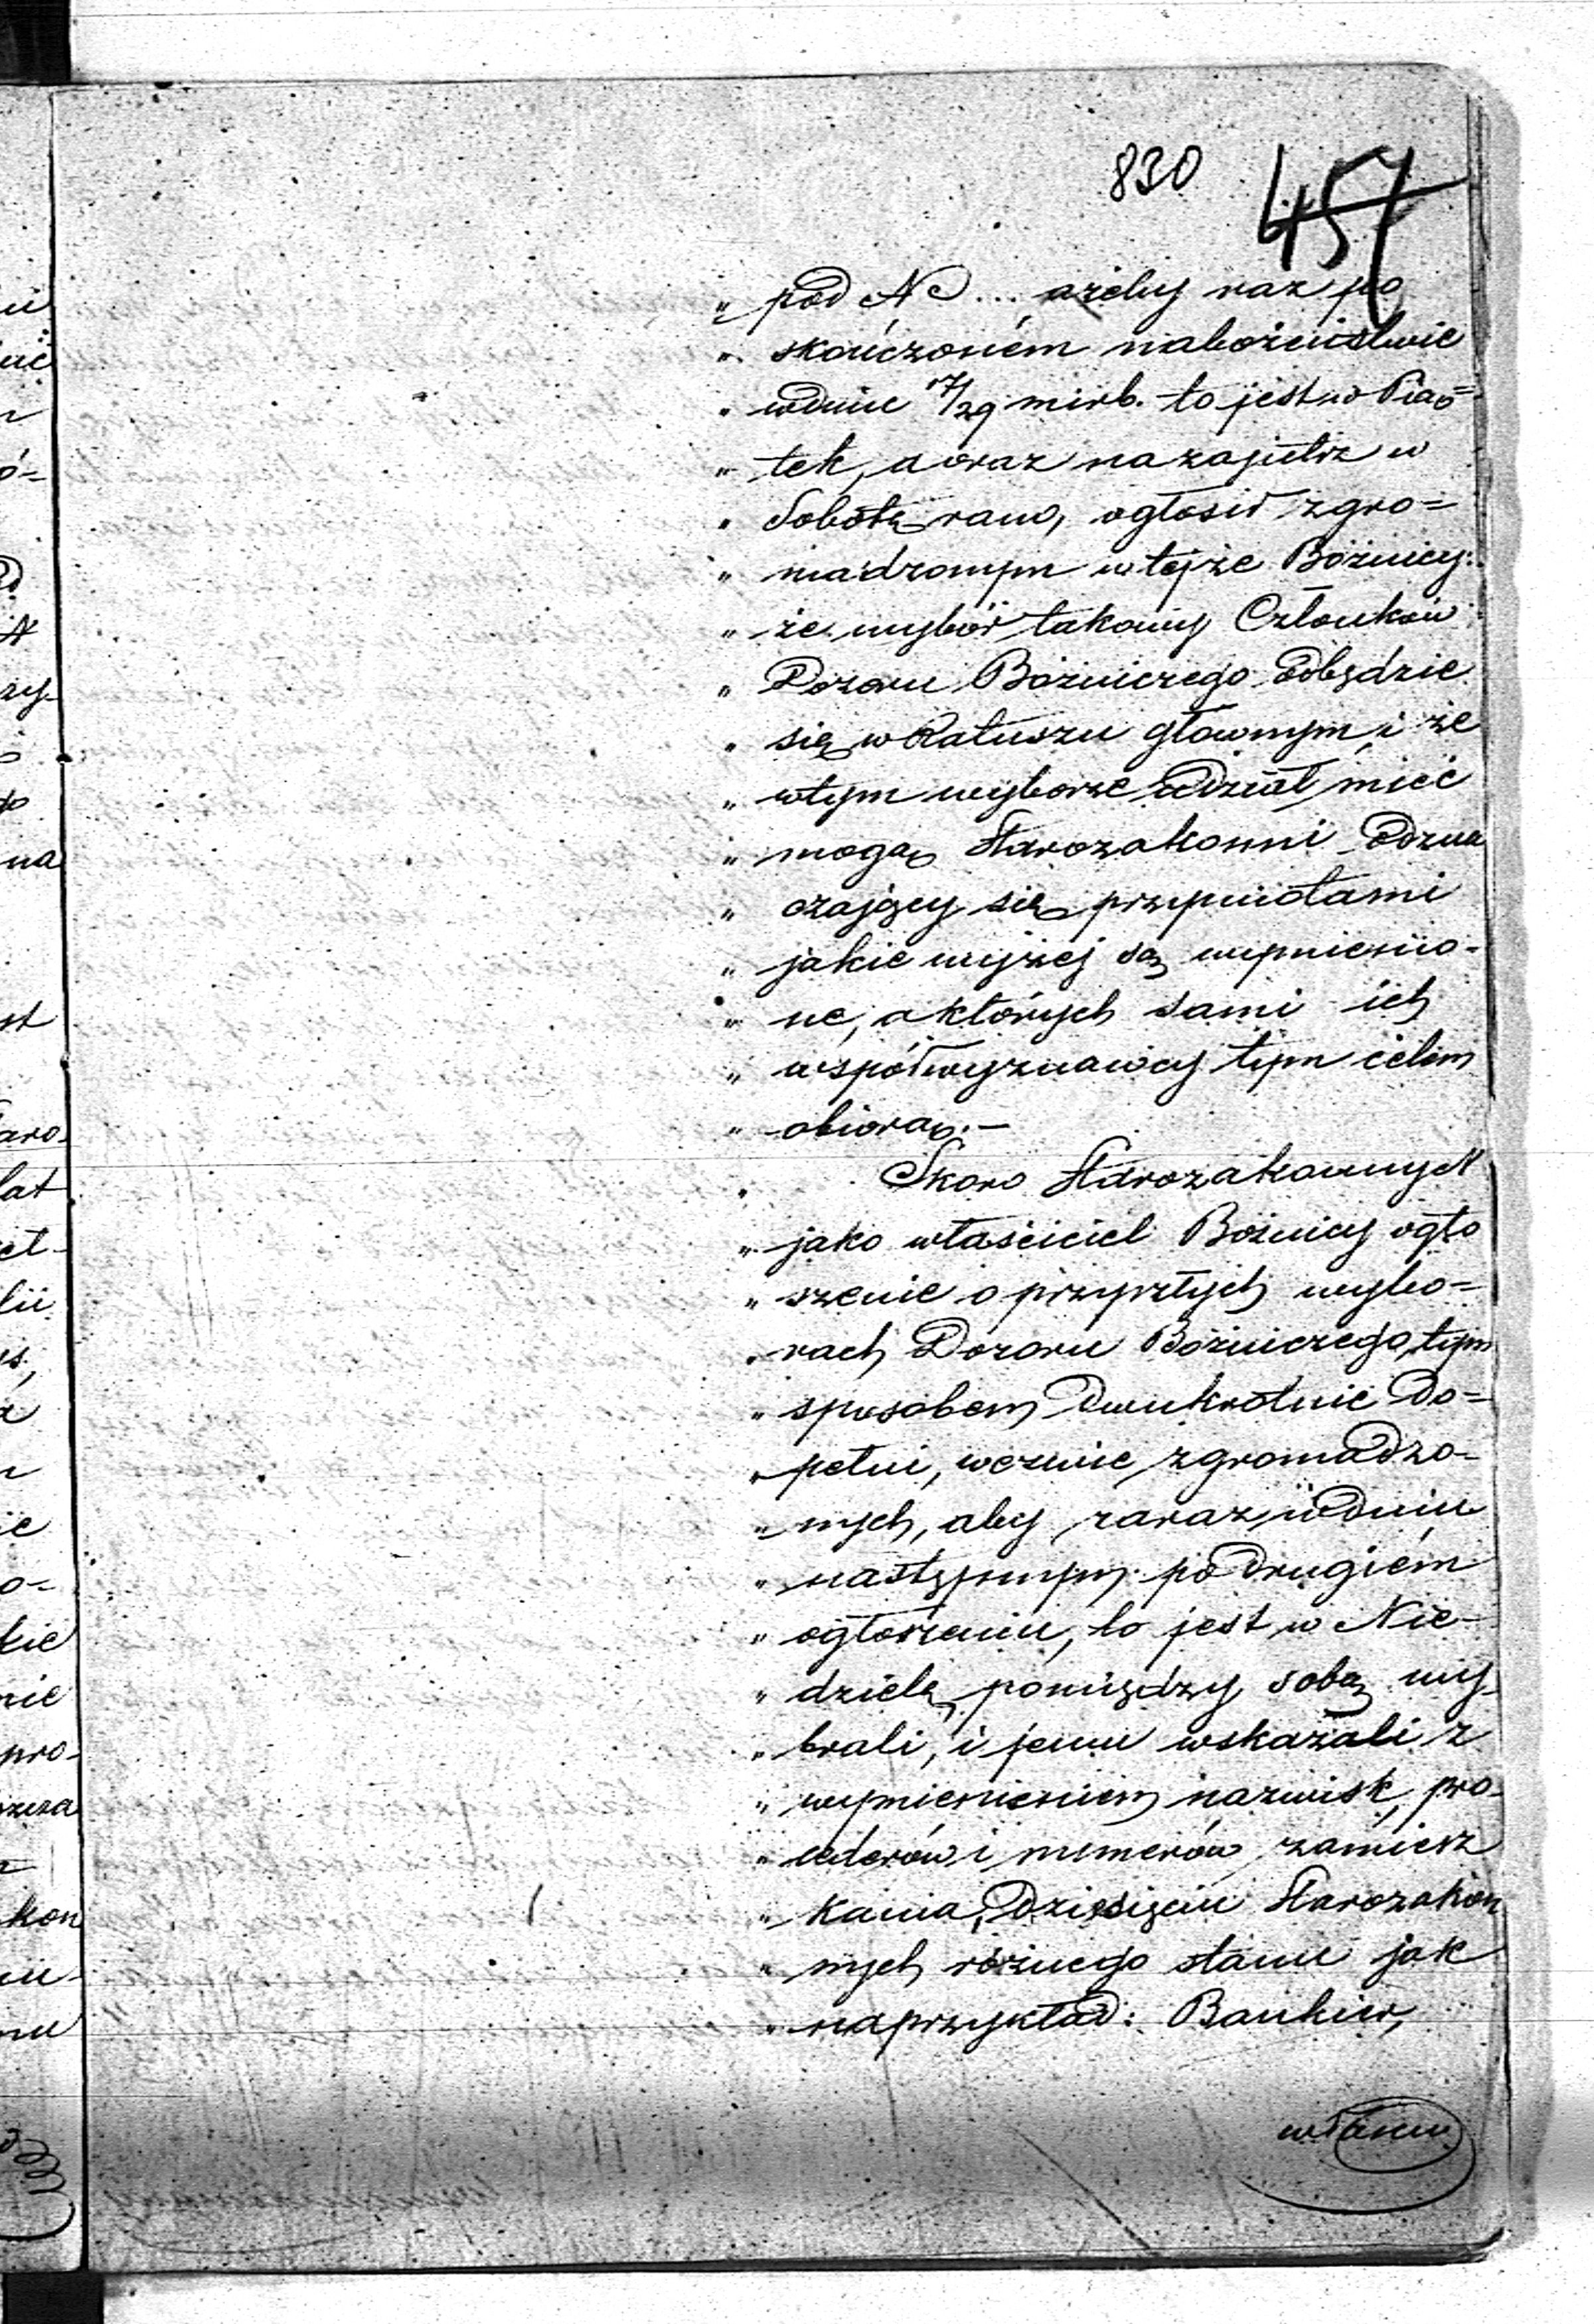 830 457
„ pod No ... ażeby raz po
„ skończoném nabożeństwie
„ wdniu 17/29 m i rb. to jest w Pią=
„ tek, a oraz nazajutrz w
„ Sobotę rano, ogłosił zgro=
„ madzonym w tejże Bóżnicy:
„ że wybór takowy Członków
„ Dozoru Bóżniczego odbędzie
„ się w Ratuszu głównym, i że
„ wtym wyborze udział mieć
„ mogą Starozakonni odzna
„ czający się przymiotami
„ jakie wyżej są wymienio=
„ ne, a których sami ich
„ współwyznawcy tym celem
„ obiorą. —
„ Skoro Starozakonny N
„ jako właściciel Bóżnicy ogło
„ szenie o przyszłych wybo=
„ rach Dozoru Bóżniczego, tym
„ sposobem dwukrotnie do=
„ pełni, wezwie zgromadzo=
„ nych, aby zaraz w dniu
„ następnym po drugiém
„ ogłoszeniu, to jest w Nie-
„ dzielę pomiędzy sobą wy
„ brali, i jemu wskazali z
„ wymienieniem nazwisk, pro
„ cederów i numerów zamiesz
„ kania, dziesięciu Starozakon
„ nych różnego stanu jak
„ naprzykład: Bankier,